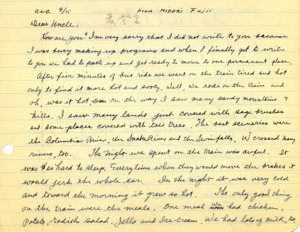 REC. 9/15 FROM MIDORI FUJII
Dear Uncle,
How are you? I'm very sorry that I did not write to you because
I was busy making up programs and when I finally got to write
to you we had to pack up and get ready to move to our permanent place.
After five minutes of bus ride we went on the train tired and hot
only to find it more hot and sooty. Well, we rode on the train and
oh, was it hot, on the way I saw many sandy mountains
hills. I saw many lands just covered with sage brushes
at some places covered with tall trees. The best sceneries were
the Columbia River, the Snake River and the Twin falls. We crossed many
rivers too. The night we spent on the train was awful. It
was so hard to sleep. Everytime when they would move the brakes it
would jerk the whole car. In the night it was very cold
and toward the morning it grew so hot. The only good thing
on the train were the meals. One meal had chicken,
Potato, radish salad, Jello and Ice Cream. We had lots of milk, too